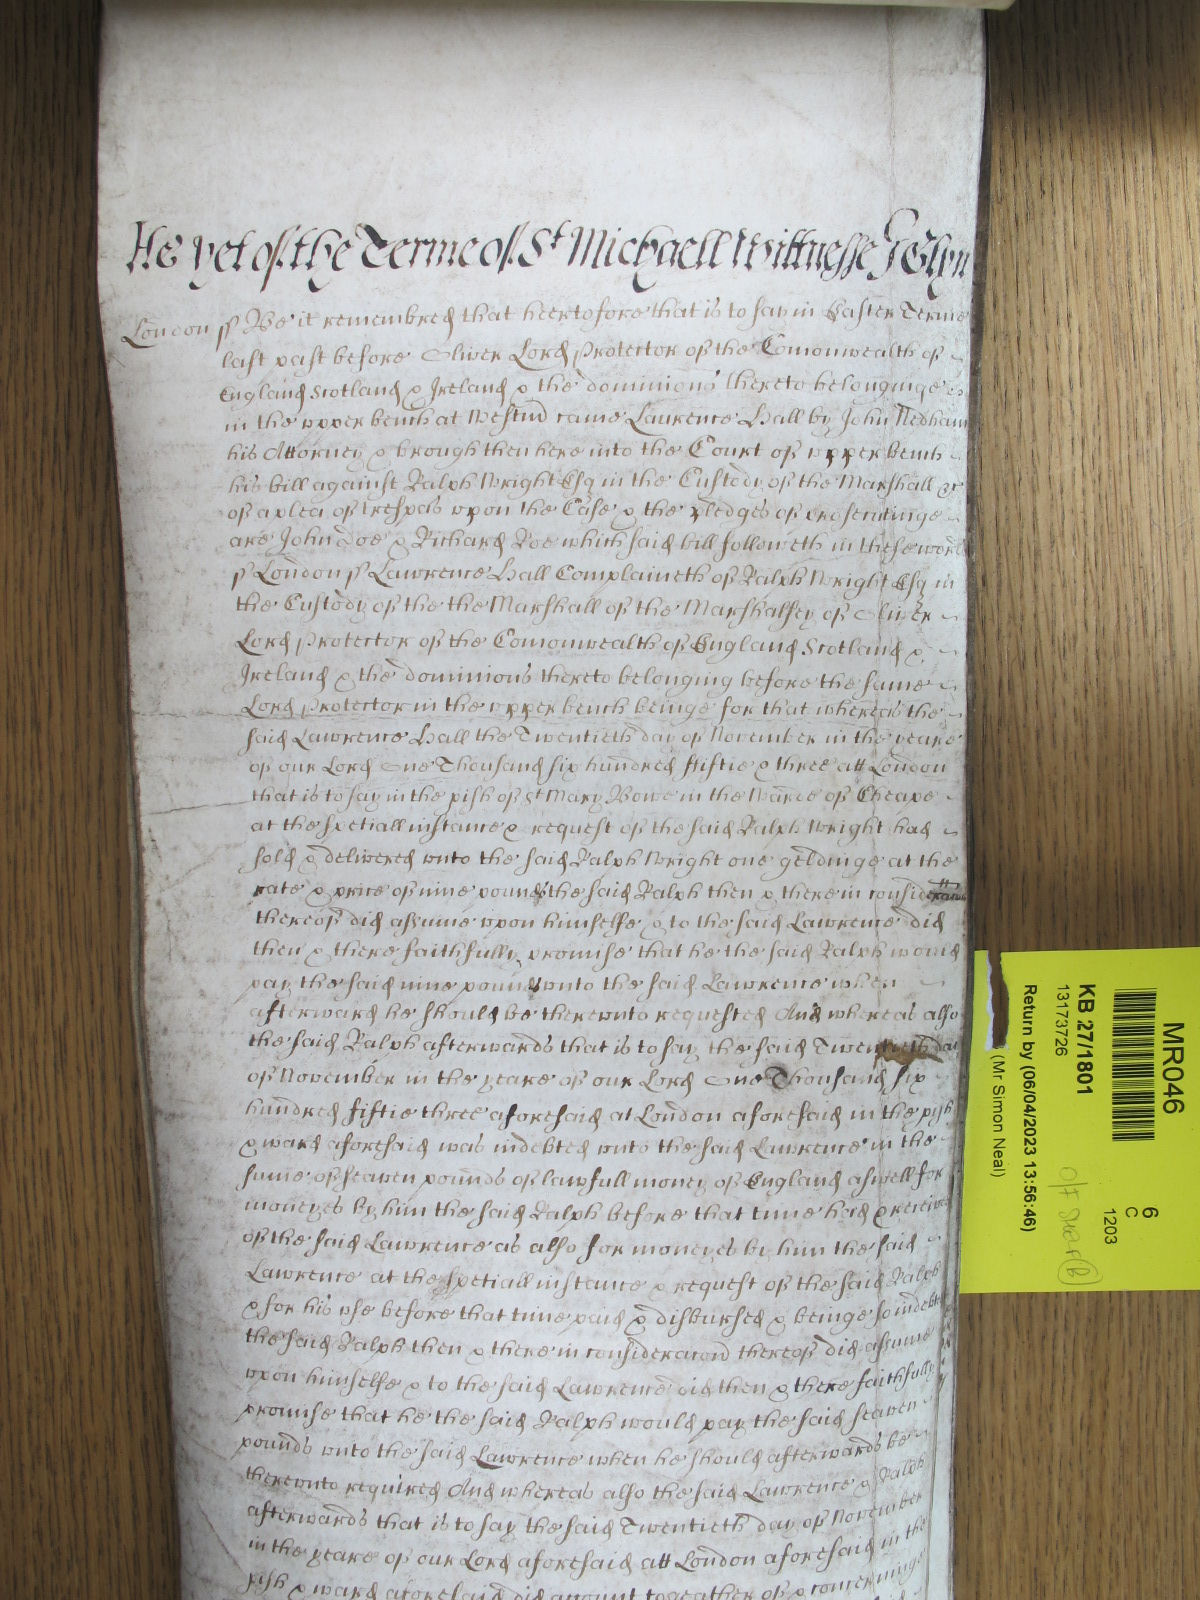 He yet of the Terme of St Michaell Wittnesse J Glyn
London ss Be it remembred that heertofore that is to say in Easter Terme
last past before Oliver Lord Protector of the Comonwealth of
England Scotland & Ireland & the dominions thereto belonginge
in the upper bench at Westm̄ came Laurence Hall by John Nedham
his Attorney & brough then here into the Court of upper bench
his bill against Ralph Wright Esq in the Custody of the Marshall &c
of a plea of trespas upon the Case & the pledges of prosecutinge
are John Doe & Richard Roe which said bill followeth in these word
ss London ss Lawrence Hall Complaineth of Ralph Wright Esq in
the Custody of the the Marshall of the Marshalsey of Oliver
Lord Protector of the Comonwealth of England Scotland &
Ireland & the dominions thereto belonging before the same
Lord Protector in the upper bench beinge for that whereas the
said Lawrence Hall the Twentieth day of November in the yeare
of our Lord One Thousand six hundred ffiftie & three att London
that is to say in the pish of St Mary Bowe in the Warde of Cheape
at the spetiall instance & request of the said Ralph Wright had
sold & delivered unto the said Ralph Wright one geldinge at the
rate & price of nine pounds the said Ralph then & there in consideracon
thereof did assume upon himselfe & to the said Lawrence did
then & there faithfully promise that he the said Ralph would
pay the said nine pounds unto the said Lawrence when
afterward he should be thereunto requested And whereas also
the said Ralph afterwards that is to say the said Twentieth day
of November in the yeare of our Lord One Thousand six
hundred fiftie three aforesaid at London aforesaid in the pish
& ward aforesaid was indebted unto the said Lawrence in the
sume of seaven pounds of lawfull money of England aswell for
moneyes by him the said Ralph before that time had & received
of the said Lawrence as also for moneyes by him the said
Lawrence at the spetiall instance & request of the said Ralph
& for his use before that time paid & disbursed & beinge so indebted
the said Ralph then & there in consideracon thereof did assume
upon himselfe & to the said Lawrence did then & there faithfully
promise that he the said Ralph would pay the said seaven
pounds unto the said Lawrence when he should afterwards be
thereunto required And whereas also the said Lawrence & Ralph
afterwards that is to say the said Twentieth day of November
in the yeare of our Lord aforesaid att London aforesaid in the
pish & ward aforesaid did acount togeather of & concerninge
MR046
KB 27/1801
13173726
Return by (06/04/2023 13:56:46)
(Mr Simon Neal)
6
C
1203